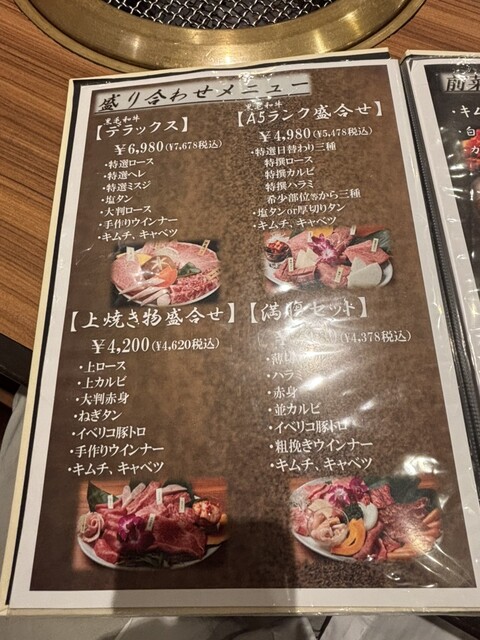 盛り合わせメニュー
黒毛和牛
【デラックス】
￥6,980(￥7,678税込)
・特選ロース
・特選ヘレ
・特選ミスジ
・塩タン
・大判ロース
・手作りウインナー
・キムチ、キャベツ
黒毛和牛
【A5ランク盛合せ】
￥4,980(￥5,478税込)
・特選日替わり三種
特撰ロース
特撰カルビ
特撰ハラミ
希少部位等から三種
・塩タンor厚切りタン
・キムチ、キャベツ
【上焼き物盛合せ】
￥4,200(￥4,620税込)
・上ロース
・上カルビ
・大判赤身
・ねぎタン
・イベリコ豚トロ
・手作りウインナー
・キムチ、キャベツ
【満腹セット】
￥4,378税込)
・ハラミ
・赤身
・並カルビ
・イベリコ豚トロ
・粗挽きウインナー
・キムチ、キャベツ
前菜
・キム